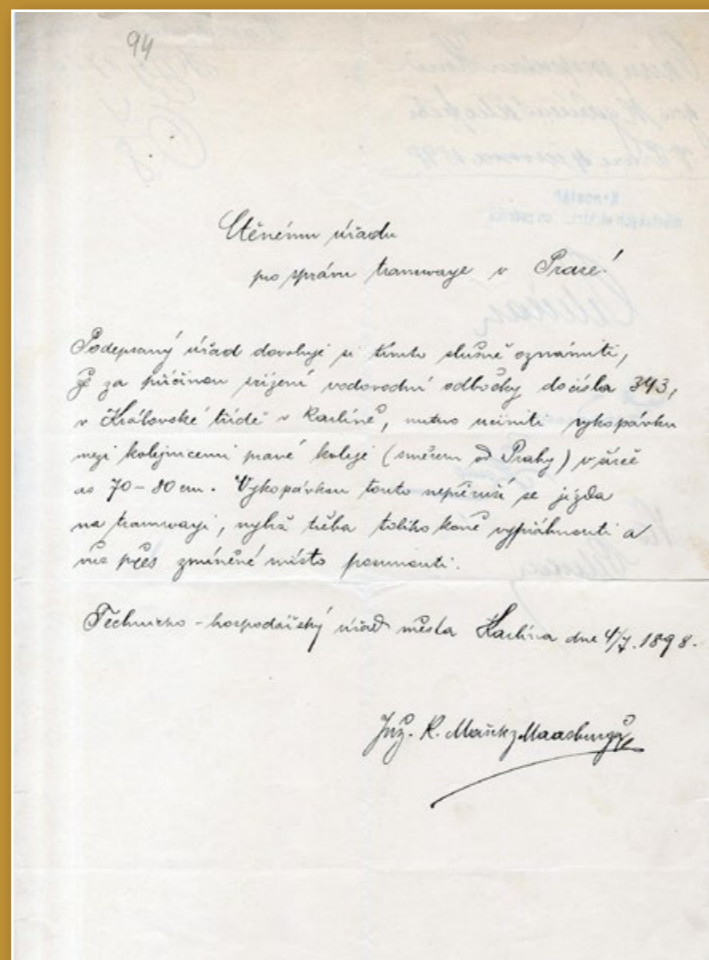 94
Ctěnému úřadu
pro správu tramwaye v Praze!
Podepsaný úřad dovoluje si tímto slušně oznámiti,
že za příčinou zřízení vodovodní odbočky do čísla 343,
v Královské třídě v Karlíně, nutno učiniti vykopávku
mezi kolejnicemi pravé koleje (směrem od Prahy) v šířce
as 70-80 cm. Vykopávkou touto nepřeruší se jízda
na tramwayi, nýbrž třeba toliko koně vypřáhnouti a
vůz přes zmíněné místo posunouti.
Technicko-hospodářský úřad města Karlína dne 4/7. 1898.
Inž. R.